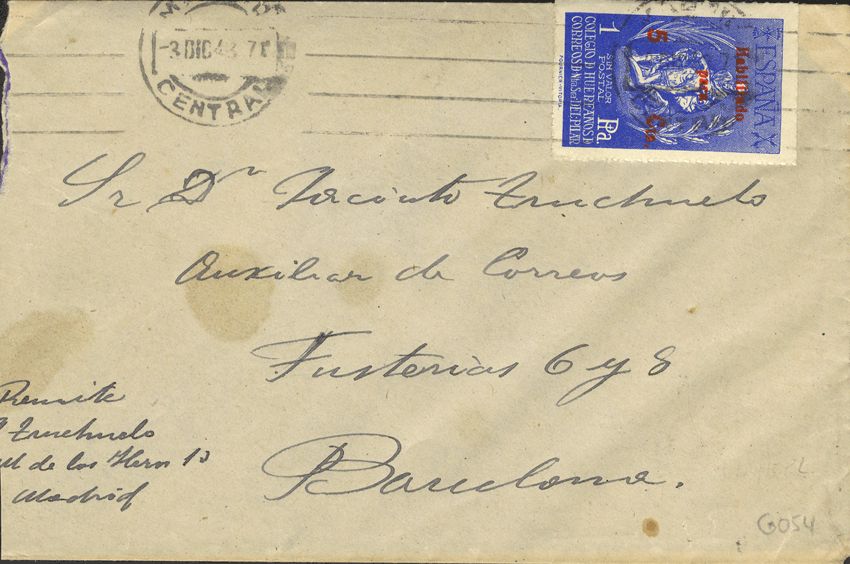 -3 DIC 48. 7T
CENTRAL
ESPAÑA
Habilitado
para
5 Cts.
1 Pta.
SIN VALOR
POSTAL
COLEGIO DE HUERFANOS DE
CORREOS DE Ntra Sra DEL PILAR
Sr Dn Jacinto Truchuelo
Auxiliar de Correos
Fusterias 6 y 8
Barcelona.
Remite
Truchuelo
de los Heros 13
Madrid
G054